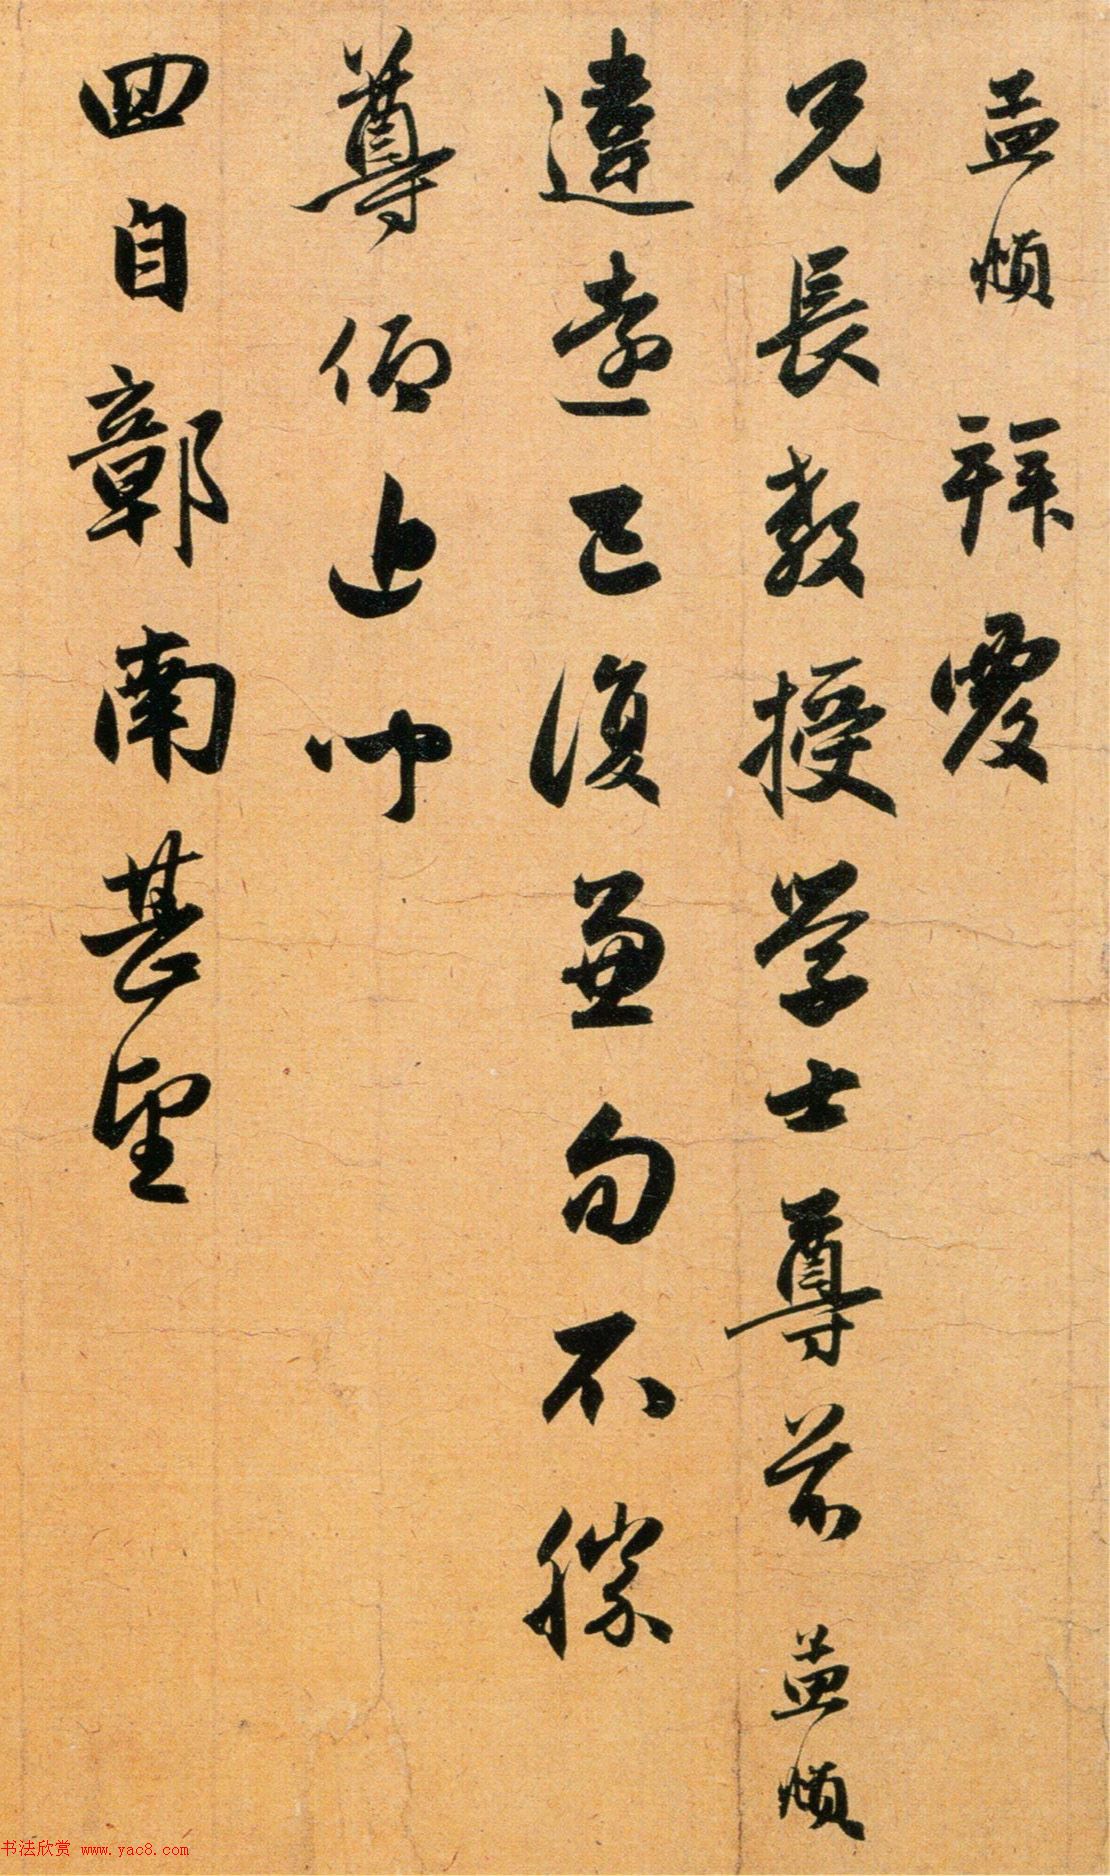 孟頫拜覆
兄長教授學士尊前孟頫
違遠已復兼旬不勝
尊仰近冲
四自鄣南甚望
书法欣赏 www.yac8.com